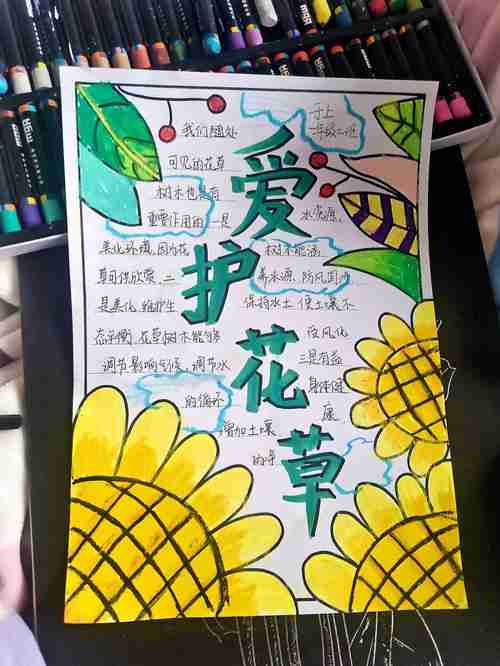 爱护花草
于上
一年级二班
我们随处
可见的花草
树木也具有
重要作用的一是
美化环境,因为花
草可供欣赏,二
是美化、维护生
态平衡,花草树木能够
调节影响气候,调节水
的循环
增加土壤
的净
水资源,
树木能涵
养水源,防风固沙
保持水土,使土壤不
被风化
三是有益
身体健
康